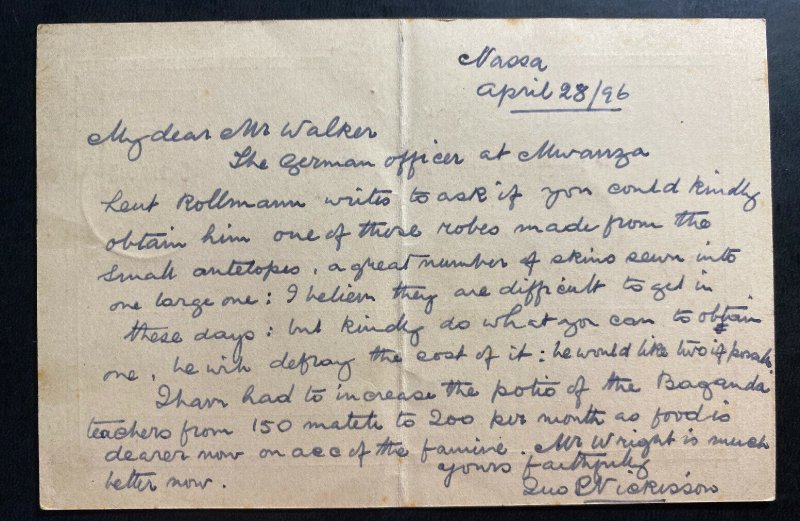 Nassa
April 28/96
My dear Mr Walker
The German officer at Mwanza
Leut Kollmann writes to ask if you could kindly
obtain him one of those robes made from the
small antelopes, a great number of skins sewn into
one large one: I believe they are difficult to get in
these days: but kindly do what you can to obtain
one, he will defray the cost of it: he would like two if possible
I have had to increase the potio of the Baganda
teachers from 150 matete to 200 per month as food is
dearer now on acc of the famine. Mr Wright is much
better now. yours faithfully
Nickisson